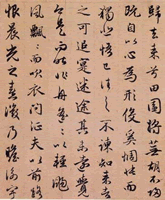 歸去来兮田園将蕪胡不歸
既自以心為形役奚惆悵而
獨悲悟已往之不諫知来者
之可追寔迷途其未遠覺
今是而昨非舟遥遥以輕颺
風飄飄而吹衣問征夫以前路
恨晨光之熹微乃瞻衡宇